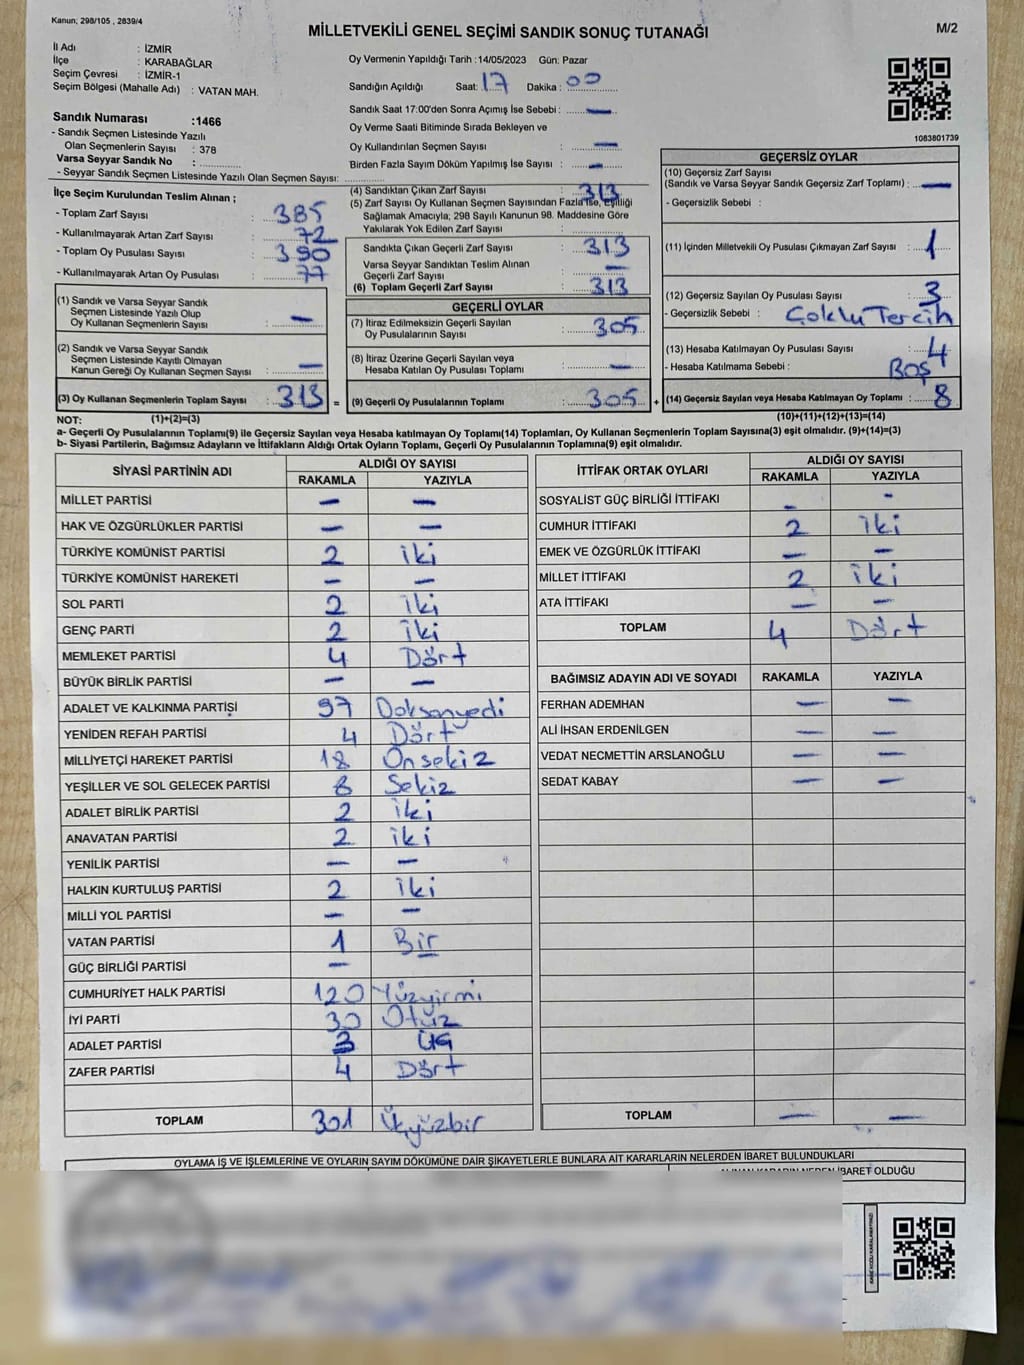 Kanun; 298/105 , 2839/4
MİLLETVEKİLİ GENEL SEÇİMİ SANDIK SONUÇ TUTANAĞI
M/2
İl Adı : İZMİR
İlçe : KARABAĞLAR
Seçim Çevresi : İZMİR-1
Seçim Bölgesi (Mahalle Adı) : VATAN MAH.
Oy Vermenin Yapıldığı Tarih :14/05/2023 Gün: Pazar
Sandığın Açıldığı Saat: 17 Dakika : 00
Sandık Saat 17:00'den Sonra Açımış İse Sebebi : —
Oy Verme Saati Bitiminde Sırada Bekleyen ve
Oy Kullandırılan Seçmen Sayısı : —
Birden Fazla Sayım Döküm Yapılmış İse Sayısı : —
1083801739
Sandık Numarası :1466
- Sandık Seçmen Listesinde Yazılı
Olan Seçmenlerin Sayısı : 378
Varsa Seyyar Sandık No :
- Seyyar Sandık Seçmen Listesinde Yazılı Olan Seçmen Sayısı:
İlçe Seçim Kurulundan Teslim Alınan ;
- Toplam Zarf Sayısı : 385
- Kullanılmayarak Artan Zarf Sayısı : 72
- Toplam Oy Pusulası Sayısı : 390
- Kullanılmayarak Artan Oy Pusulası : 77
(1) Sandık ve Varsa Seyyar Sandık
Seçmen Listesinde Yazılı Olup
Oy Kullanan Seçmenlerin Sayısı : —
(2) Sandık ve Varsa Seyyar Sandık
Seçmen Listesinde Kayıtlı Olmayan
Kanun Gereği Oy Kullanan Seçmen Sayısı : —
(3) Oy Kullanan Seçmenlerin Toplam Sayısı : 313 =
(4) Sandıktan Çıkan Zarf Sayısı : 313
(5) Zarf Sayısı Oy Kullanan Seçmen Sayısından Fazla İse, Eşitliği
Sağlamak Amacıyla; 298 Sayılı Kanunun 98. Maddesine Göre
Yakılarak Yok Edilen Zarf Sayısı :
Sandıkta Çıkan Geçerli Zarf Sayısı : 313
Varsa Seyyar Sandıktan Teslim Alınan
Geçerli Zarf Sayısı : —
(6) Toplam Geçerli Zarf Sayısı : 313
GEÇERLİ OYLAR
(7) İtiraz Edilmeksizin Geçerli Sayılan
Oy Pusulalarının Sayısı : 305
(8) İtiraz Üzerine Geçerli Sayılan veya
Hesaba Katılan Oy Pusulası Toplamı : —
(9) Geçerli Oy Pusulalarının Toplamı : 305 +
GEÇERSİZ OYLAR
(10) Geçersiz Zarf Sayısı
(Sandık ve Varsa Seyyar Sandık Geçersiz Zarf Toplamı) : —
- Geçersizlik Sebebi :
(11) İçinden Milletvekili Oy Pusulası Çıkmayan Zarf Sayısı : 1
(12) Geçersiz Sayılan Oy Pusulası Sayısı : 3
- Geçersizlik Sebebi : Çoklu Tercih
(13) Hesaba Katılmayan Oy Pusulası Sayısı : 4
- Hesaba Katılmama Sebebi : Boş
(14) Geçersiz Sayılan veya Hesaba Katılmayan Oy Toplamı : 8
NOT: (1)+(2)=(3)
(10)+(11)+(12)+(13)=(14)
a- Geçerli Oy Pusulalarının Toplamı(9) ile Geçersiz Sayılan veya Hesaba katılmayan Oy Toplamı(14) Toplamları, Oy Kullanan Seçmenlerin Toplam Sayısına(3) eşit olmalıdır. (9)+(14)=(3)
b- Siyasi Partilerin, Bağımsız Adayların ve İttifakların Aldığı Ortak Oyların Toplamı, Geçerli Oy Pusulalarının Toplamına(9) eşit olmalıdır.
SİYASİ PARTİNİN ADI ALDIĞI OY SAYISI
RAKAMLA YAZIYLA
MİLLET PARTİSİ — —
HAK VE ÖZGÜRLÜKLER PARTİSİ — —
TÜRKİYE KOMÜNİST PARTİSİ 2 iki
TÜRKİYE KOMÜNİST HAREKETİ — —
SOL PARTİ 2 iki
GENÇ PARTİ 2 iki
MEMLEKET PARTİSİ 4 Dört
BÜYÜK BİRLİK PARTİSİ — —
ADALET VE KALKINMA PARTİSİ 97 Doksanyedi
YENİDEN REFAH PARTİSİ 4 Dört
MİLLİYETÇİ HAREKET PARTİSİ 18 Onsekiz
YEŞİLLER VE SOL GELECEK PARTİSİ 8 Sekiz
ADALET BİRLİK PARTİSİ 2 iki
ANAVATAN PARTİSİ 2 iki
YENİLİK PARTİSİ — —
HALKIN KURTULUŞ PARTİSİ 2 iki
MİLLİ YOL PARTİSİ — —
VATAN PARTİSİ 1 Bir
GÜÇ BİRLİĞİ PARTİSİ —
CUMHURİYET HALK PARTİSİ 120 Yüzyirmi
İYİ PARTİ 30 Otuz
ADALET PARTİSİ 3 Üç
ZAFER PARTİSİ 4 Dört
TOPLAM 301 Üçyüzbir
İTTİFAK ORTAK OYLARI ALDIĞI OY SAYISI
RAKAMLA YAZIYLA
SOSYALİST GÜÇ BİRLİĞİ İTTİFAKI — —
CUMHUR İTTİFAKI 2 iki
EMEK VE ÖZGÜRLÜK İTTİFAKI — —
MİLLET İTTİFAKI 2 iki
ATA İTTİFAKI — —
TOPLAM 4 Dört
BAĞIMSIZ ADAYIN ADI VE SOYADI RAKAMLA YAZIYLA
FERHAN ADEMHAN — —
ALİ İHSAN ERDENİLGEN — —
VEDAT NECMETTİN ARSLANOĞLU — —
SEDAT KABAY — —
TOPLAM — —
OYLAMA İŞ VE İŞLEMLERİNE VE OYLARIN SAYIM DÖKÜMÜNE DAİR ŞİKAYETLERLE BUNLARA AİT KARARLARIN NELERDEN İBARET BULUNDUKLARI
İBARET OLDUĞU